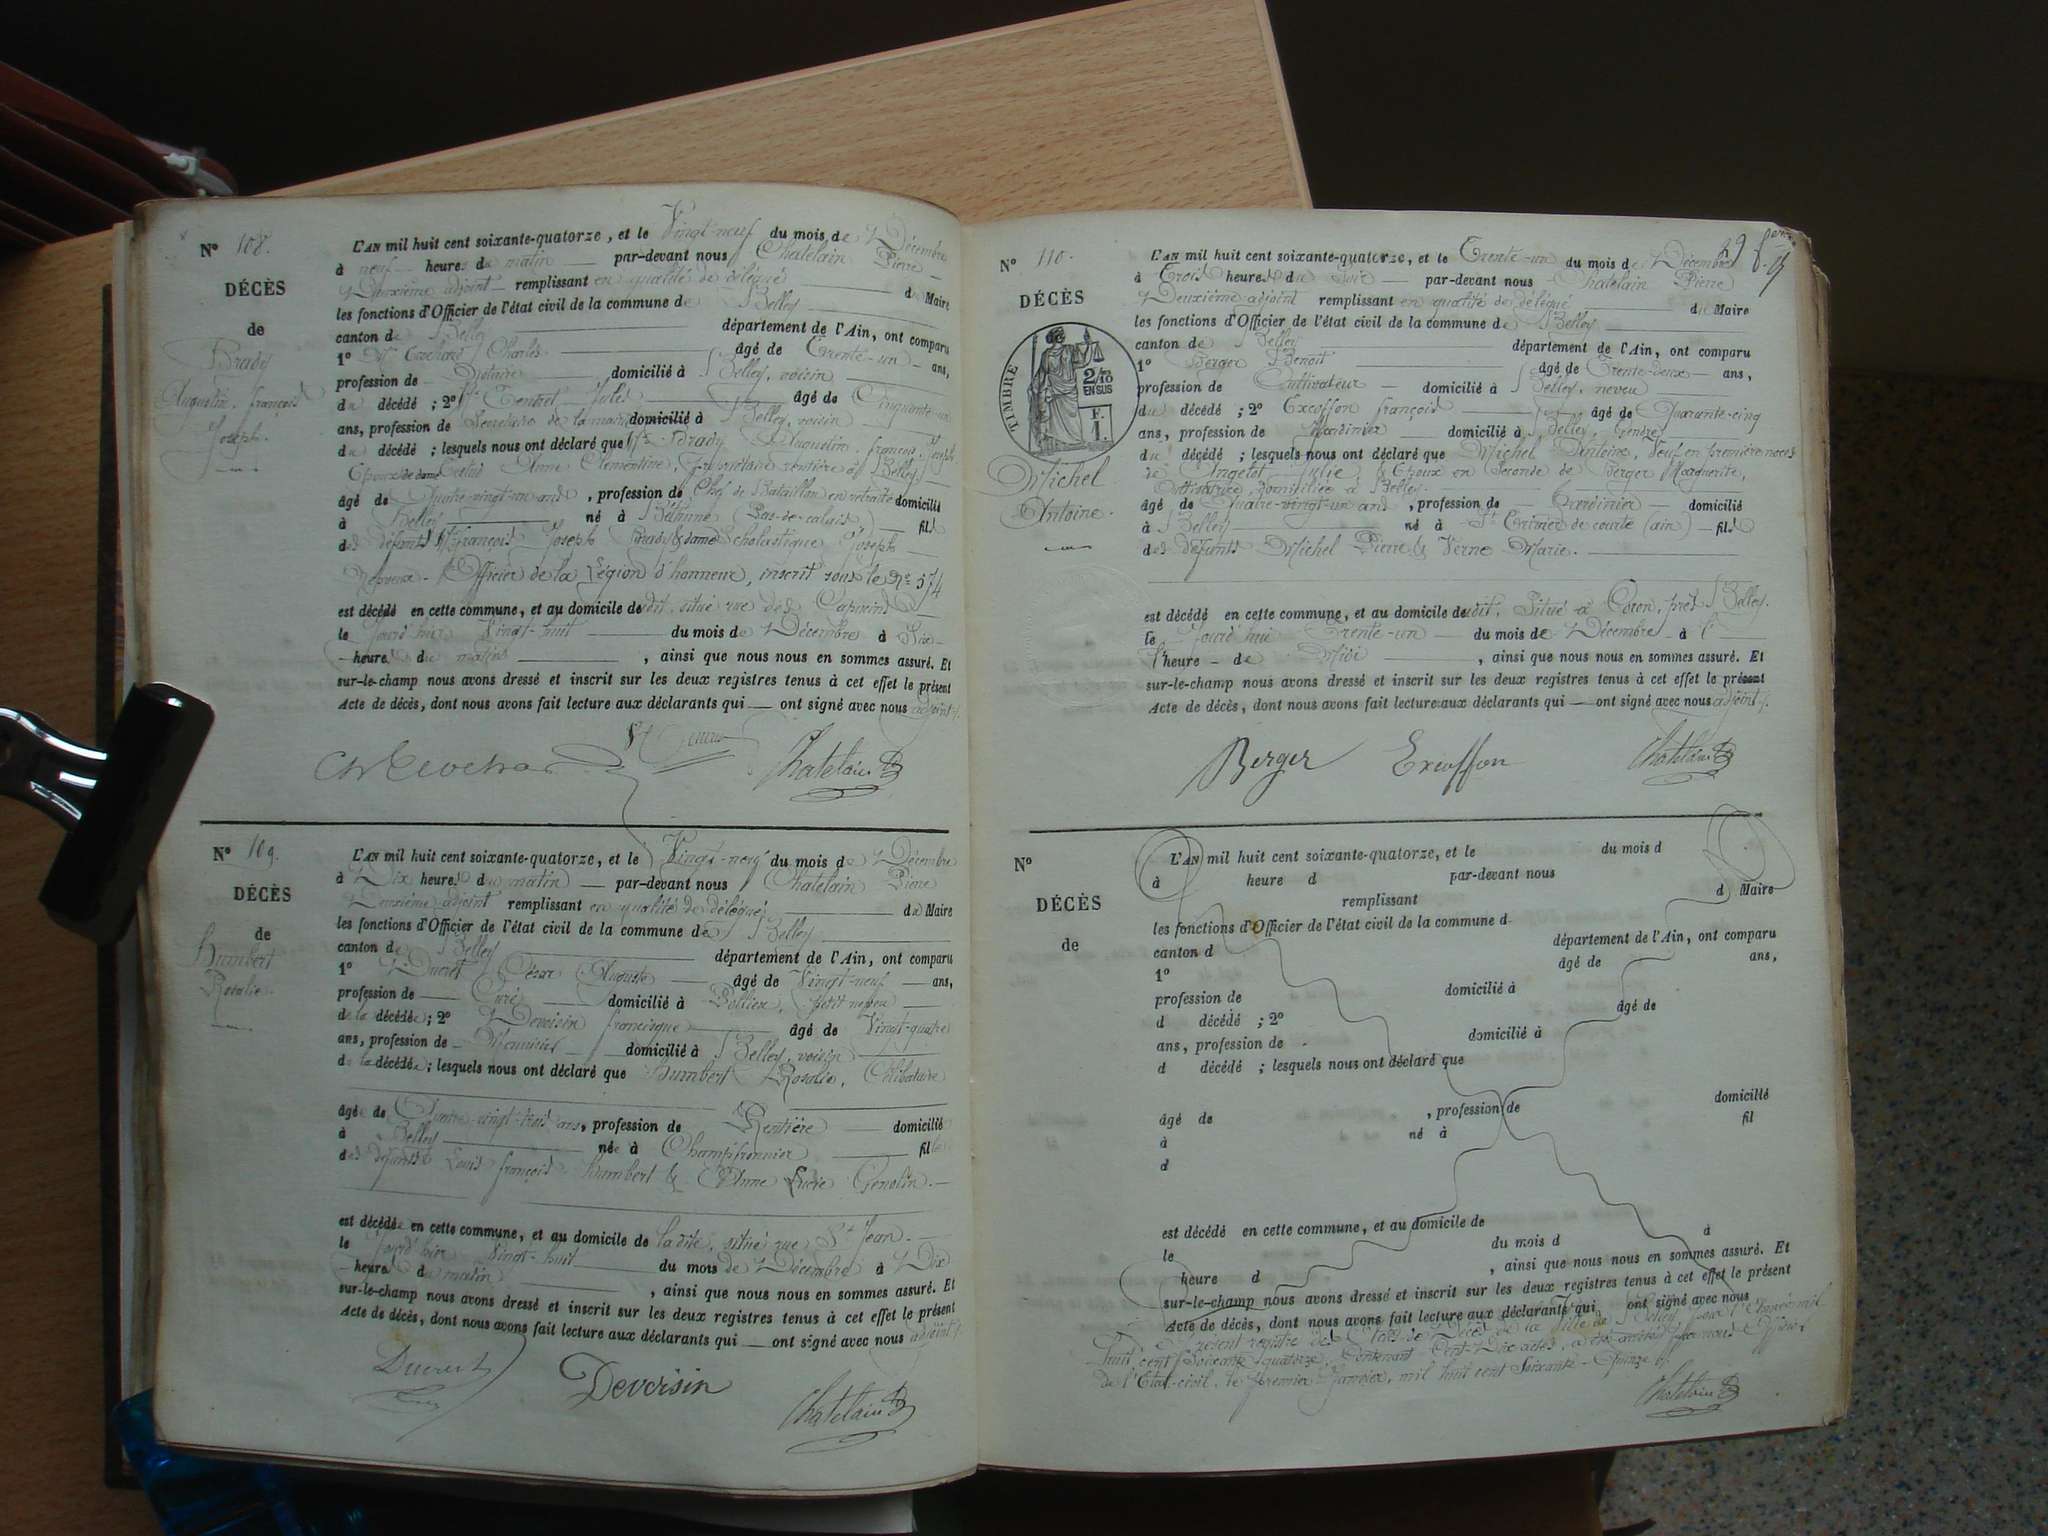 N° 108.
DÉCÈS
de
Brady
Augustin, françois
Joseph.
L'AN mil huit cent soixante-quatorze, et le Vingt-neuf du mois de Décembre
à neuf heures du matin par-devant nous Chatelain Pierre
Deuxième adjoint remplissant en qualité de délégué du Maire
les fonctions d'Officier de l'état civil de la commune de Belley
canton de Belley département de l'Ain, ont comparu
1° Charles âgé de Trente-un ans,
profession de Notaire domicilié à Belley, voisin
du décédé ; 2° Jules âgé de Cinquante-un
ans, profession de Secrétaire de la mairie domicilié à Belley, voisin
du décédé ; lesquels nous ont déclaré que Mr Brady Augustin, françois, Joseph
Epoux de dame Anne Clémentine, propriétaire rentière à Belley
âgé de Quatre-vingt-un ans, profession de Chef de Bataillon en retraite domicilié
à Belley né à Béthune (Pas-de-calais) fils
des défunts Mr François Joseph Brady & dame Scholastique Joseph
Officier de la Légion d'honneur, inscrit sous le N° 574
est décédé en cette commune, et au domicile dudit, situé rue des Capucins
le jourd'hui Vingt-huit du mois de Décembre à Six
heures du matin, ainsi que nous nous en sommes assuré. Et
sur-le-champ nous avons dressé et inscrit sur les deux registres tenus à cet effet le présent
Acte de décès, dont nous avons fait lecture aux déclarants qui — ont signé avec nous adjoint./.
Chatelain
N° 109.
DÉCÈS
de
Humbert
Rosalie.
L'AN mil huit cent soixante-quatorze, et le Vingt-neuf du mois de Décembre
à Dix heures du matin — par-devant nous Chatelain Pierre
Deuxième adjoint remplissant en qualité de délégué du Maire
les fonctions d'Officier de l'état civil de la commune de Belley
canton de Belley département de l'Ain, ont comparu
1° Ducret César Auguste âgé de Vingt-neuf ans,
profession de Curé domicilié à Pollieu, petit neveu
de la décédée ; 2° Devoisin françisque âgé de Vingt-quatre
ans, profession de Menuisier domicilié à Belley, voisin
de la décédée ; lesquels nous ont déclaré que Humbert Rosalie, Célibataire
âgée de Quatre vingt-trois ans, profession de Rentière domicilié
à Belley née à Champfromier fille
des défunts Louis françois Humbert & Anne Lucie Genolin.
est décédée en cette commune, et au domicile de ladite, situé rue St Jean.
le jourd'hui Vingt-huit du mois de Décembre à Dix
heures du matin, ainsi que nous nous en sommes assuré. Et
sur-le-champ nous avons dressé et inscrit sur les deux registres tenus à cet effet le présent
Acte de décès, dont nous avons fait lecture aux déclarants qui — ont signé avec nous adjoint./.
Ducret Devoisin Chatelain
29
N° 110.
DÉCÈS
TIMBRE
2/10
EN SUS
F.
1.
Michel
Antoine.
L'AN mil huit cent soixante-quatorze, et le Trente-un du mois de Décembre
à Trois heures du soir par-devant nous Chatelain Pierre
Deuxième adjoint remplissant en qualité de délégué du Maire
les fonctions d'Officier de l'état civil de la commune de Belley
canton de Belley département de l'Ain, ont comparu
1° Berger Benoit âgé de Trente-deux ans,
profession de Cultivateur domicilié à Belley, neveu
du décédé ; 2° Excoffon françois âgé de Quarante-cinq
ans, profession de Jardinier domicilié à Belley, Gendre
du décédé ; lesquels nous ont déclaré que Michel Antoine, Veuf en premières noces
de Angelot Julie, & Epoux en Seconde de Berger Marguerite,
Cultivatrice, domiciliée à Belley.
âgé de Quatre-vingt-un ans, profession de Jardinier domicilié
à Belley né à St Trivier de courte (ain) fils
des défunts Michel Pierre & Verne Marie.
est décédé en cette commune, et au domicile dudit, Situé à Coron, près Belley.
le jourd'hui Trente-un du mois de Décembre à l'
heure de Midi, ainsi que nous nous en sommes assuré. Et
sur-le-champ nous avons dressé et inscrit sur les deux registres tenus à cet effet le présent
Acte de décès, dont nous avons fait lecture aux déclarants qui — ont signé avec nous adjoint./.
Berger Excoffon Chatelain
N°
DÉCÈS
de
L'AN mil huit cent soixante-quatorze, et le du mois d
à heure d par-devant nous
remplissant d Maire
les fonctions d'Officier de l'état civil de la commune d
canton d département de l'Ain, ont comparu
1° âgé de ans,
profession de domicilié à
d décédé ; 2° âgé de
ans, profession de domicilié à
d décédé ; lesquels nous ont déclaré que
âgé de , profession de domicilié
à né à fil
d
est décédé en cette commune, et au domicile de
le du mois d à
heure d , ainsi que nous nous en sommes assuré. Et
sur-le-champ nous avons dressé et inscrit sur les deux registres tenus à cet effet le présent
Acte de décès, dont nous avons fait lecture aux déclarants qui ont signé avec nous
présent registre des Actes de Décès de la Ville de Belley, pour l'Année mil
huit cent Soixante quatorze, Contenant Cent-dix actes, a été arrêté par nous Officier
de l'Etat-civil, le premier Janvier, mil huit cent Soixante-Quinze./.
Chatelain